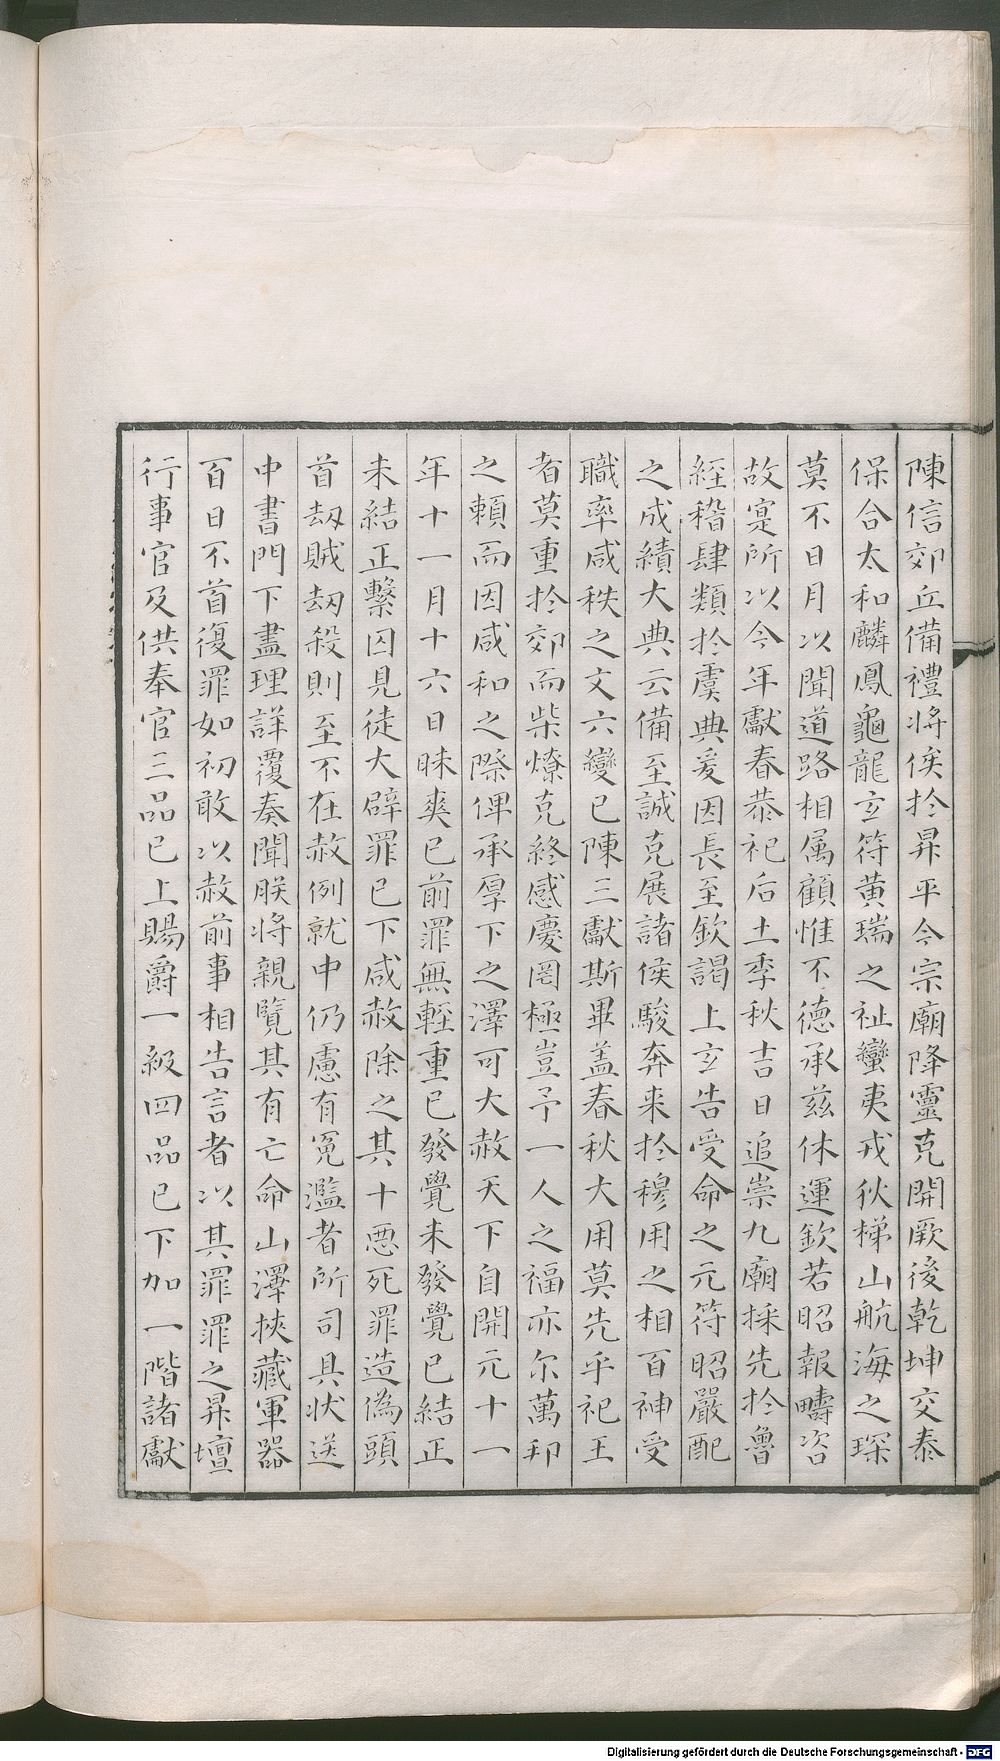 陳信郊丘備禮將俟於昇平今宗廟降靈克開厥後乾坤交泰
保合太和麟鳳龜龍玄符黃瑞之祉蠻夷戎狄梯山航海之琛
莫不日月以聞道路相属顧惟不德承兹休運欽若昭報疇咨
故寔所以今年獻春恭祀后土季秋吉日追崇九廟採先於魯
經稽肆類於虞典爰因長至欽謁上玄告受命之元符昭嚴配
之成績大典云備至誠克展諸侯駿奔來於穆用之相百神受
職率咸秩之文六變已陳三獻斯畢盖春秋大用莫先乎祀王
者莫重於郊而柴燎克終感慶罔極豈予一人之福亦尔萬邦
之賴而因咸和之際俾承厚下之澤可大赦天下自開元十一
年十一月十六日昧爽已前罪無輕重已發覺未發覺已結正
未結正繫囚見徒大辟罪已下咸赦除之其十惡死罪造偽頭
首劫賊刼殺則至不在赦例就中仍慮有冤濫者所司具状送
中書門下盡理詳覆奏聞朕將親覽其有亡命山澤挾藏軍器
百日不首復罪如初敢以赦前事相告言者以其罪罪之昇壇
行事官及供奉官三品已上賜爵一級四品已下加一階諸獻
Digitalisierung gefördert durch die Deutsche Forschungsgemeinschaft - DFG